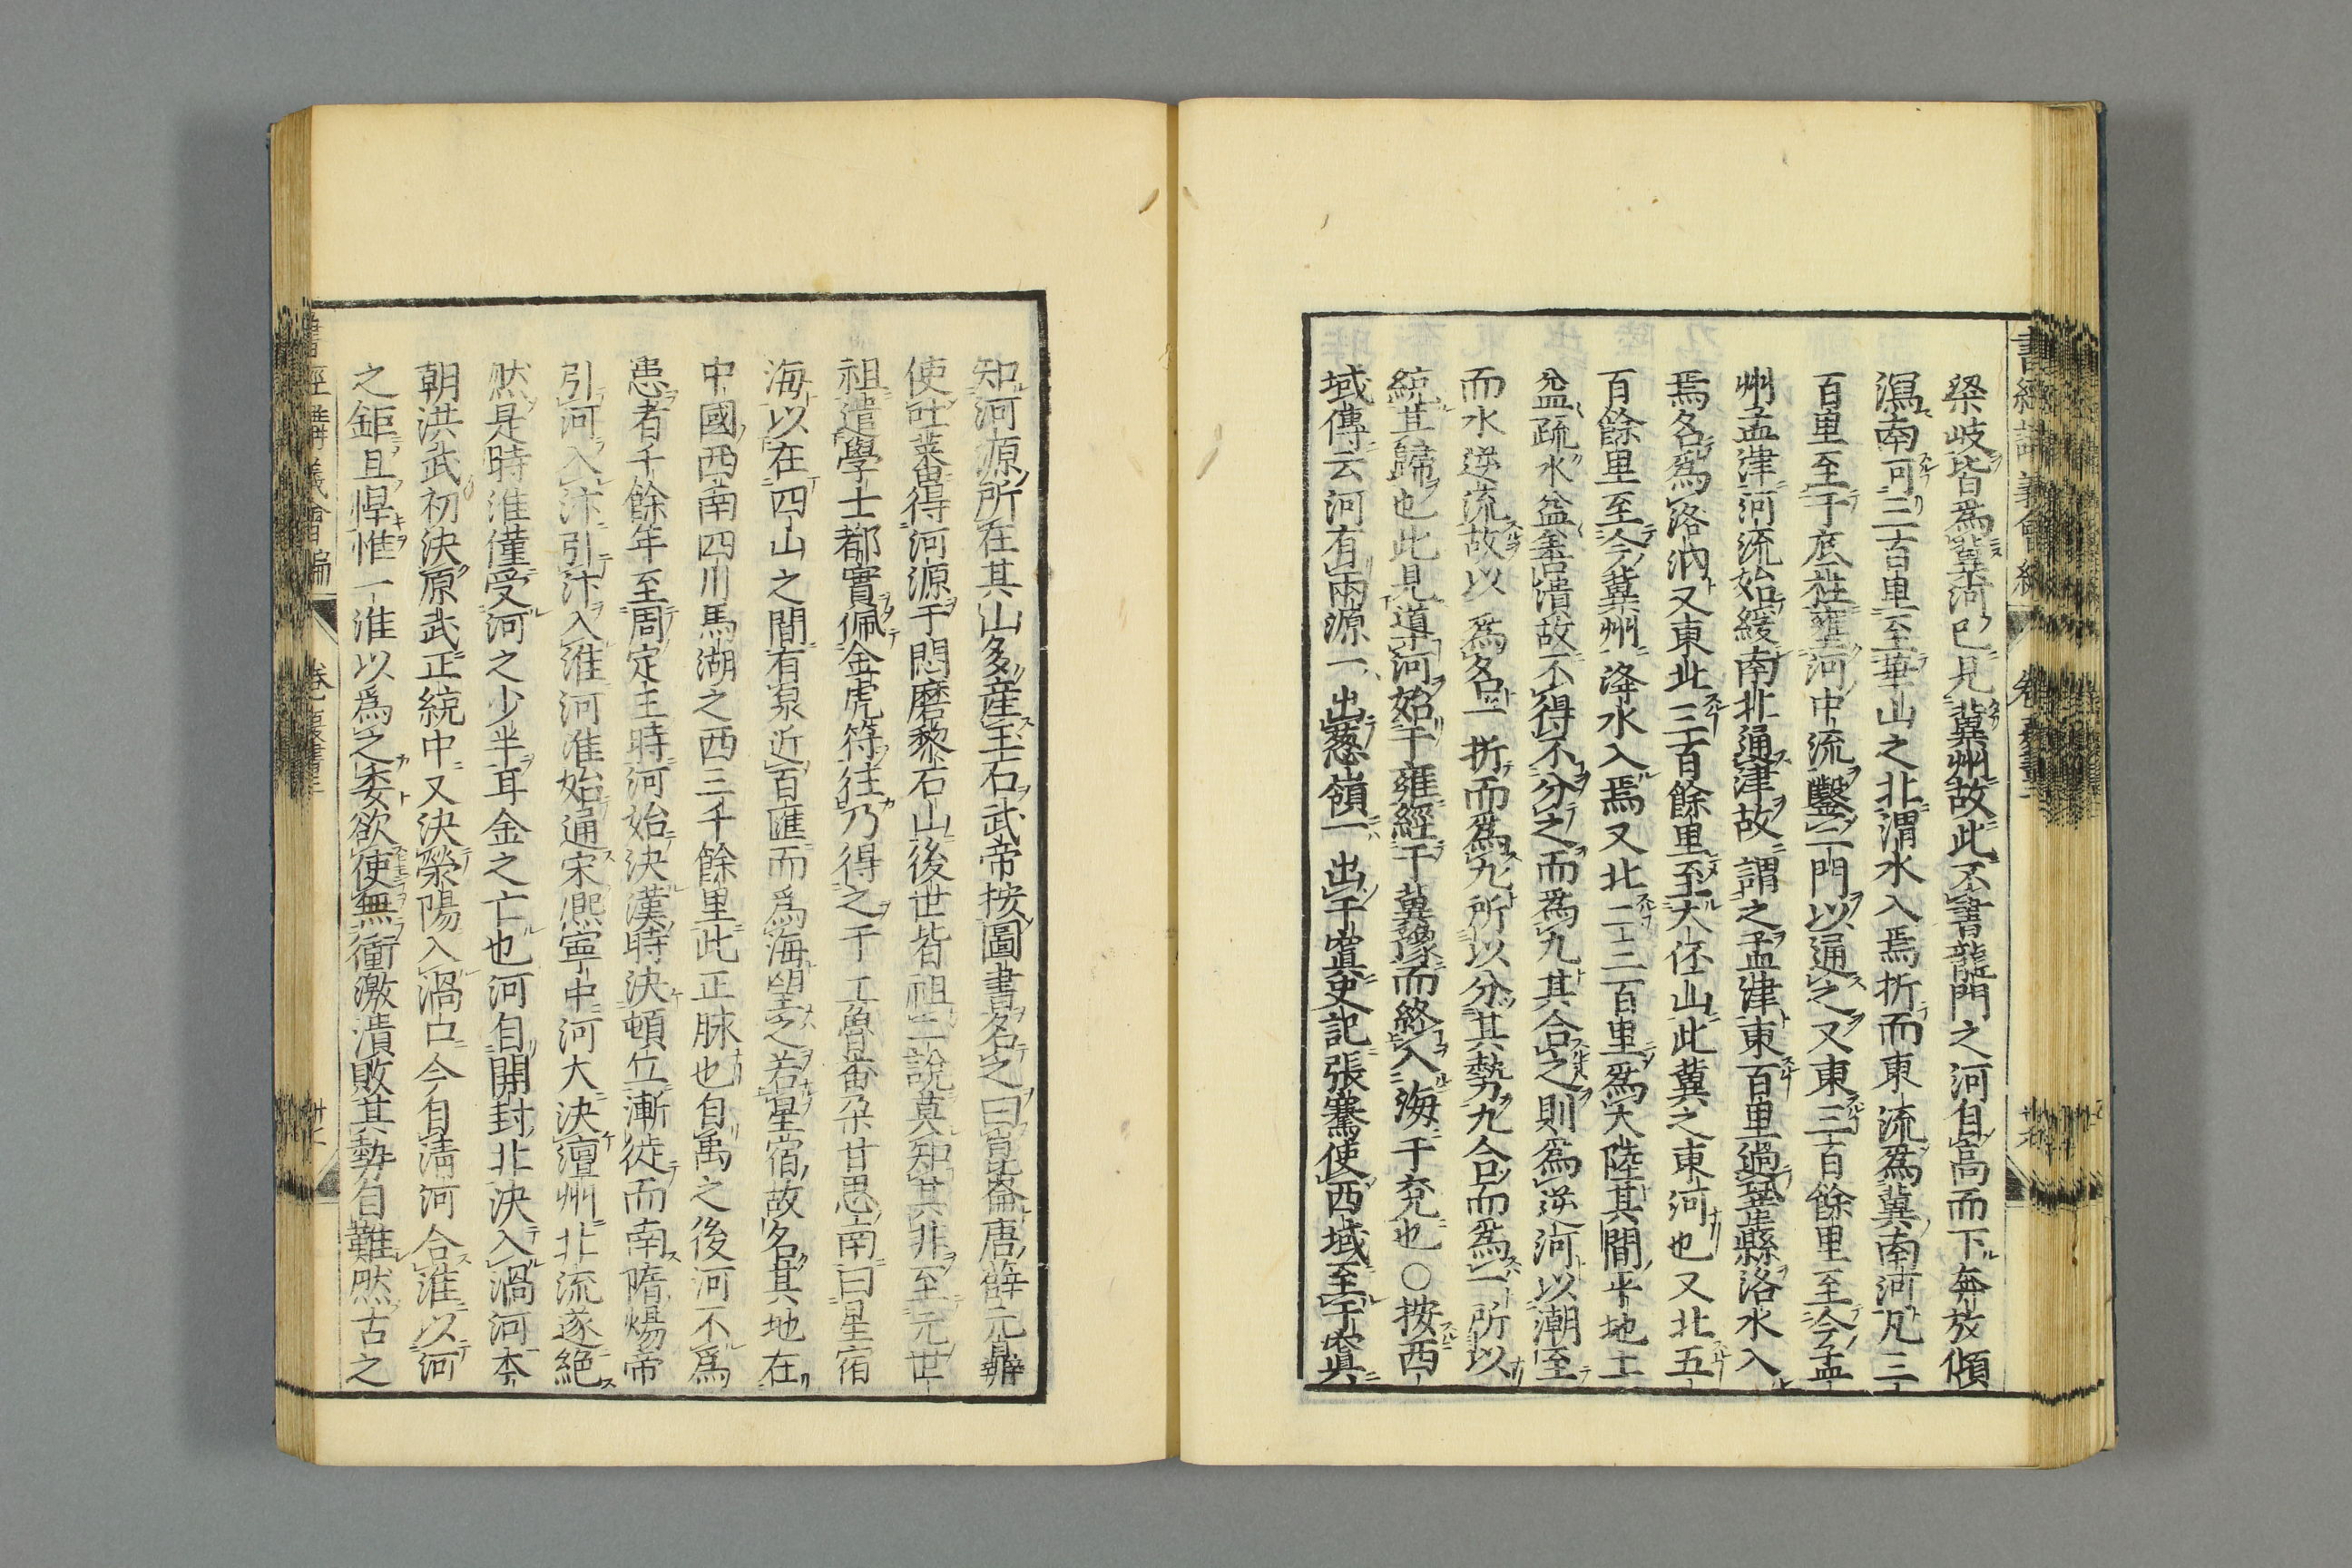 梁岐皆爲冀河已見冀州故此不書龍門之河自高而下奔放傾
瀉南可三百里至華山之北渭水入焉折而東流爲冀南河凡三
百里至于底柱壅河中流鑿三門以通之又東三百餘里至今孟
州孟津河流始緩南北通津故謂之孟津東百里過鞏縣洛水入
焉名爲洛汭又東北三百餘里至大伾山此冀之東河也又北五
百餘里至今冀州洚水入焉又北二三百里爲大陸其間平地土
益疏水益善潰故不得不分之而爲九其合之則爲逆河以潮至
而水逆流故以爲名一折而爲九所以分其勢九合而爲一所以
統其歸也此見道河始于雍經于冀豫而終入海于兗也○按西
域傳云河有兩源一出葱嶺一出于窴史記張騫使西域至于窴
知河源所在其山多産玉石武帝按圖書名之曰崑崙唐薛元鼎
使吐蕃得河源于悶磨黎石山後世皆祖二說莫知其非至元世
祖遣學士都實佩金虎符往乃得之于工魯畨朶甘思南曰星宿
海以在四山之間有泉近百匯而爲海望之若星宿故名其地在
中國西南四川馬湖之西三千餘里此正脉也自禹之後河不爲
患者千餘年至周定王時河始決漢時決頓丘漸徙而南隋煬帝
引河入汴引汴入淮河淮始通宋熙寧中河大決澶州北流遂絕
然是時淮僅受河之少半耳金之亡也河自開封北決入渦河本
朝洪武初決原武正統中又決滎陽入渦口今自淸河合淮以河
之鉅且悍惟一淮以爲之委欲使無衝激潰敗其勢自難然古之